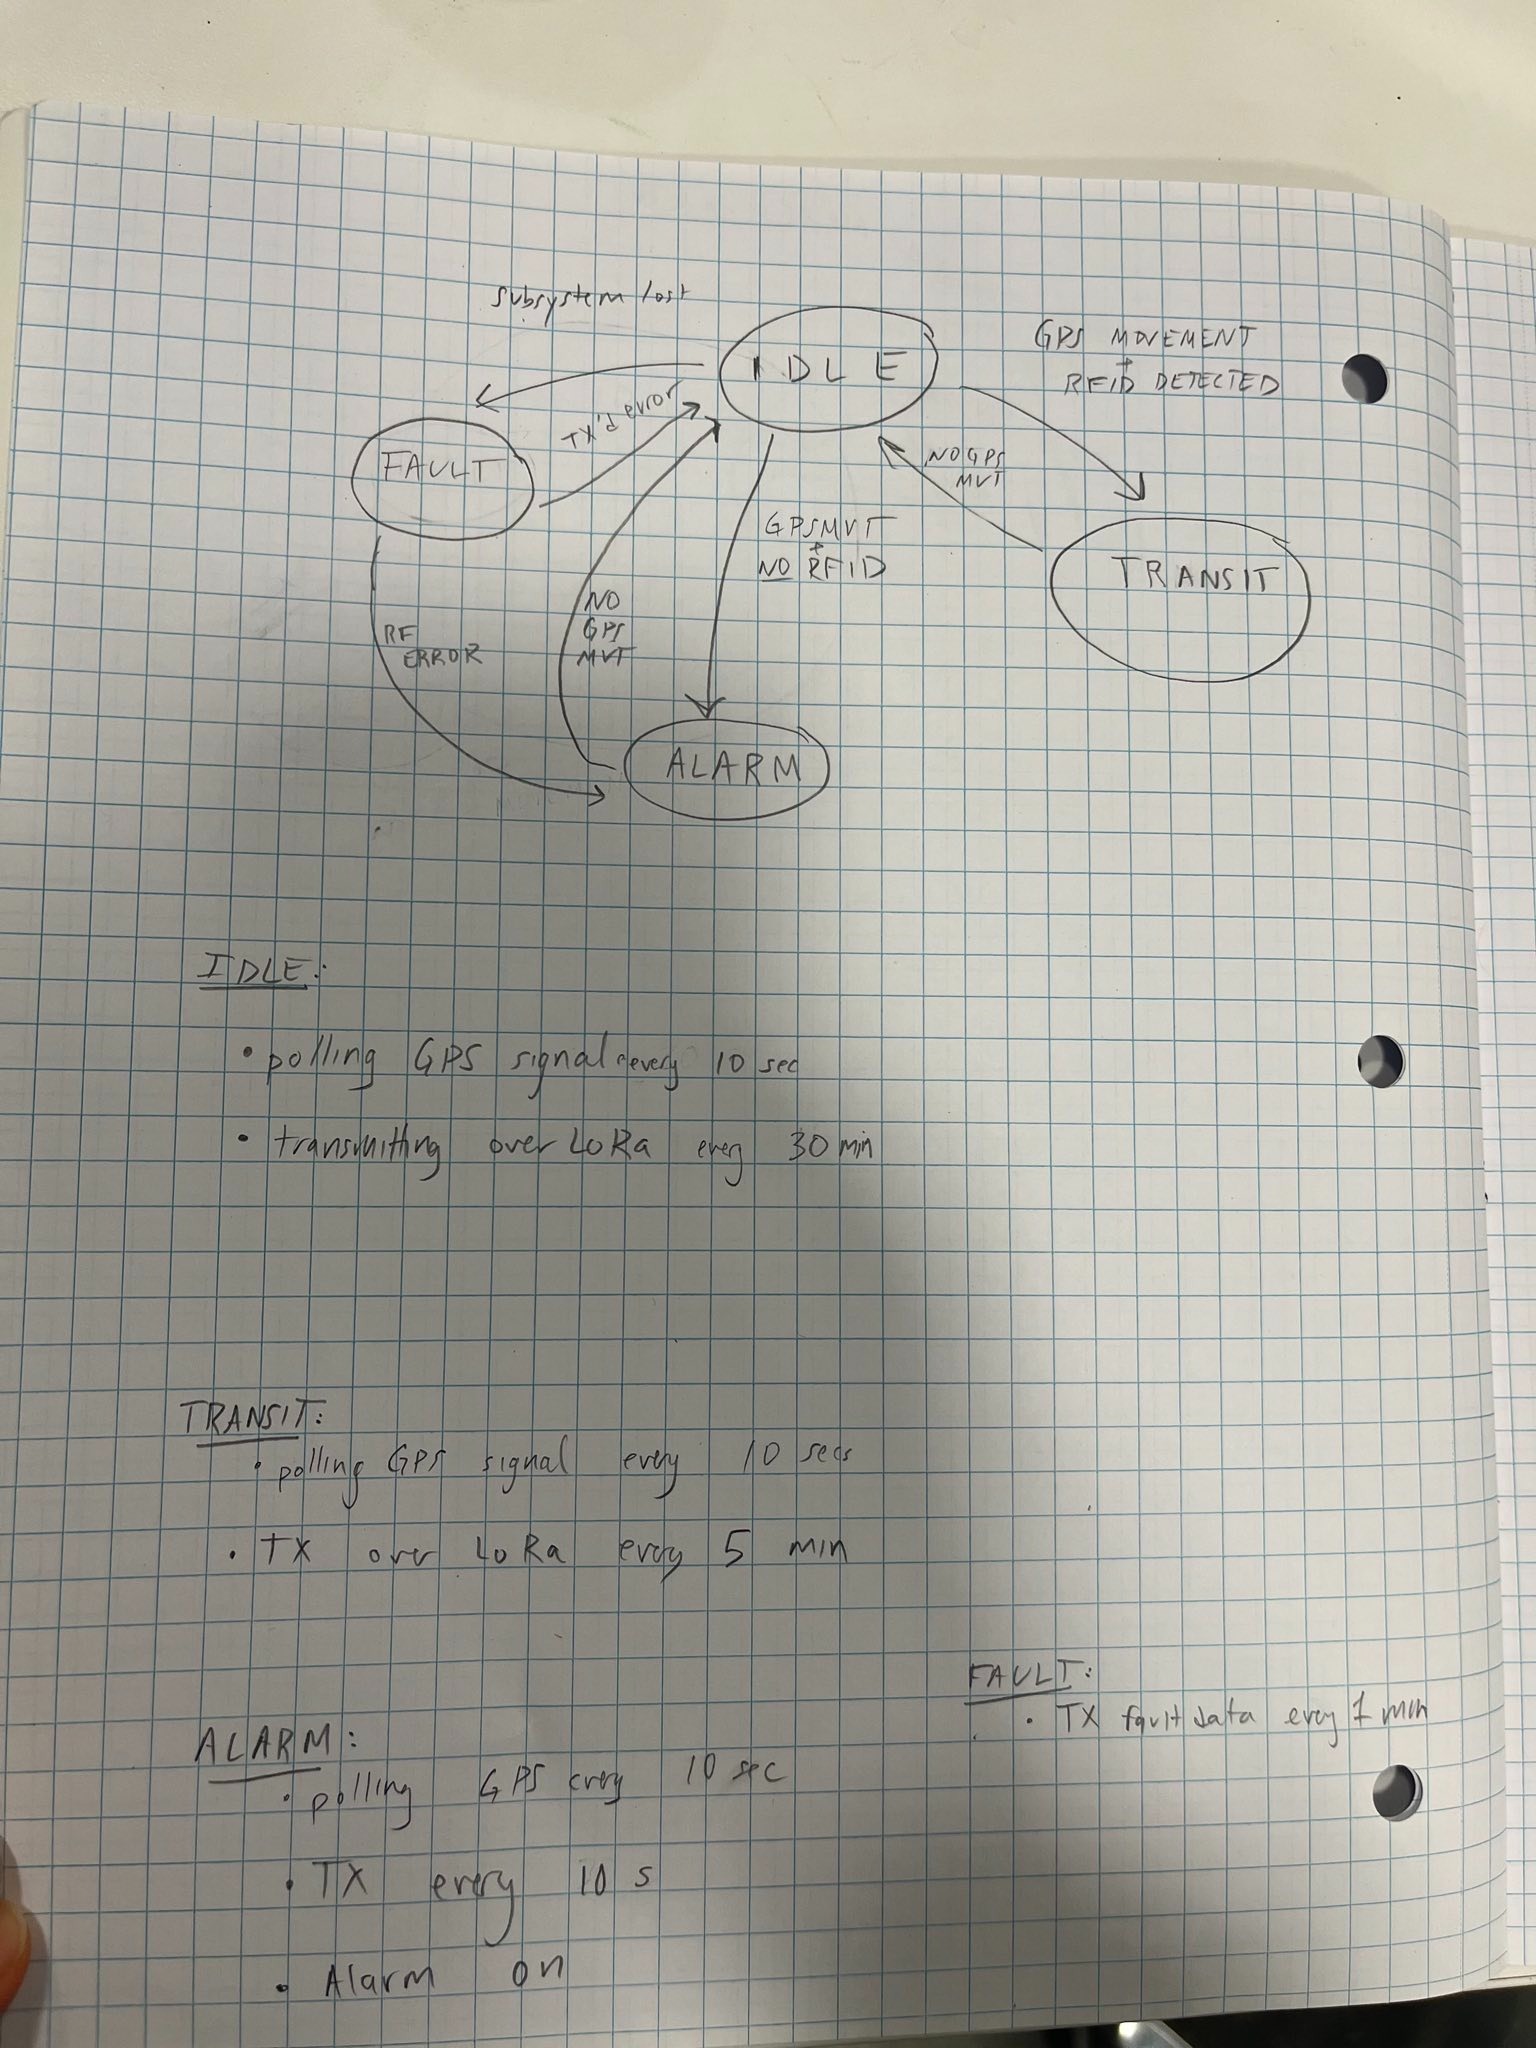 subsystem lost
IDLE
GPS MOVEMENT
+
RFID DETECTED
TX'd error
FAULT
NO GPS
MVT
GPS MVT
+
NO RFID
TRANSIT
NO
GPS
MVT
RF
ERROR
ALARM
IDLE:
• polling GPS signal every 10 sec
• transmitting over LoRa every 30 min
TRANSIT:
• polling GPS signal every 10 secs
• TX over LoRa every 5 min
FAULT:
• TX fault data every 1 min
ALARM:
• polling GPS every 10 sec
• TX every 10 s
• Alarm on